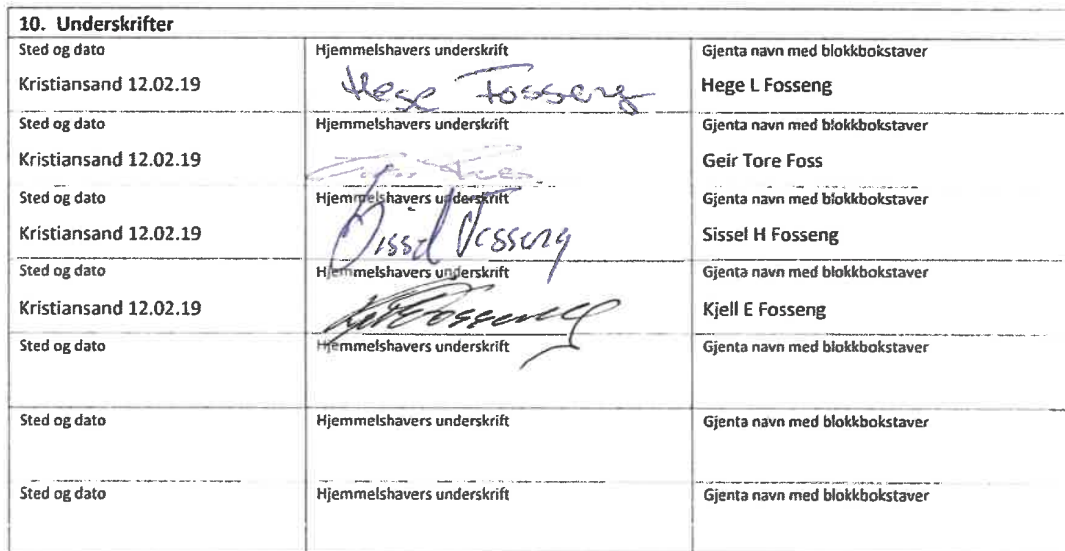 10. Underskrifter
Sted og dato Hjemmelshavers underskrift Gjenta navn med blokkbokstaver
Kristiansand 12.02.19 Hege Fosseng Hege L Fosseng
Sted og dato Hjemmelshavers underskrift Gjenta navn med blokkbokstaver
Kristiansand 12.02.19 Geir Tore Foss
Sted og dato Hjemmelshavers underskrift Gjenta navn med blokkbokstaver
Kristiansand 12.02.19 Sissel Fosseng Sissel H Fosseng
Sted og dato Hjemmelshavers underskrift Gjenta navn med blokkbokstaver
Kristiansand 12.02.19 Kjell E Fosseng
Sted og dato Hjemmelshavers underskrift Gjenta navn med blokkbokstaver
Sted og dato Hjemmelshavers underskrift Gjenta navn med blokkbokstaver
Sted og dato Hjemmelshavers underskrift Gjenta navn med blokkbokstaver